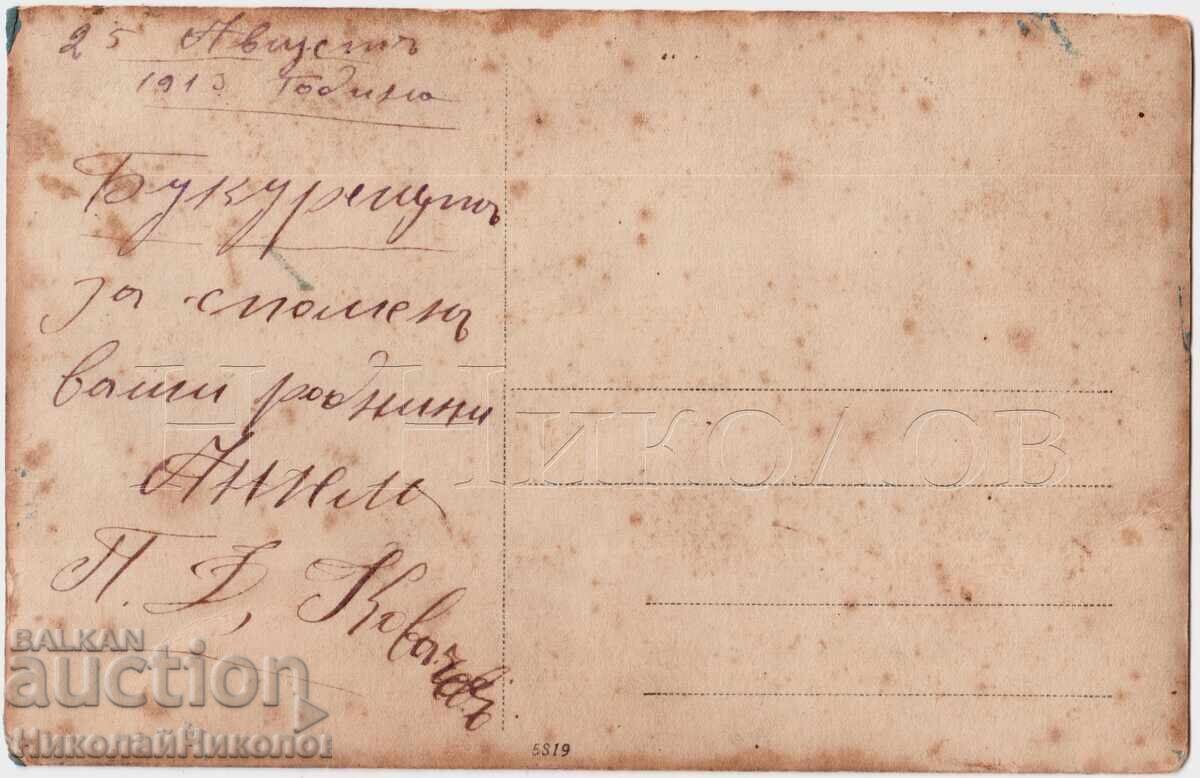 25 Августъ
1913 Година
Букурещтъ
за споменъ
ваши роднини
П. Д. Ковачевъ
Н. НИКОЛОВ
BALKAN
auction
НиколайНиколов
5819